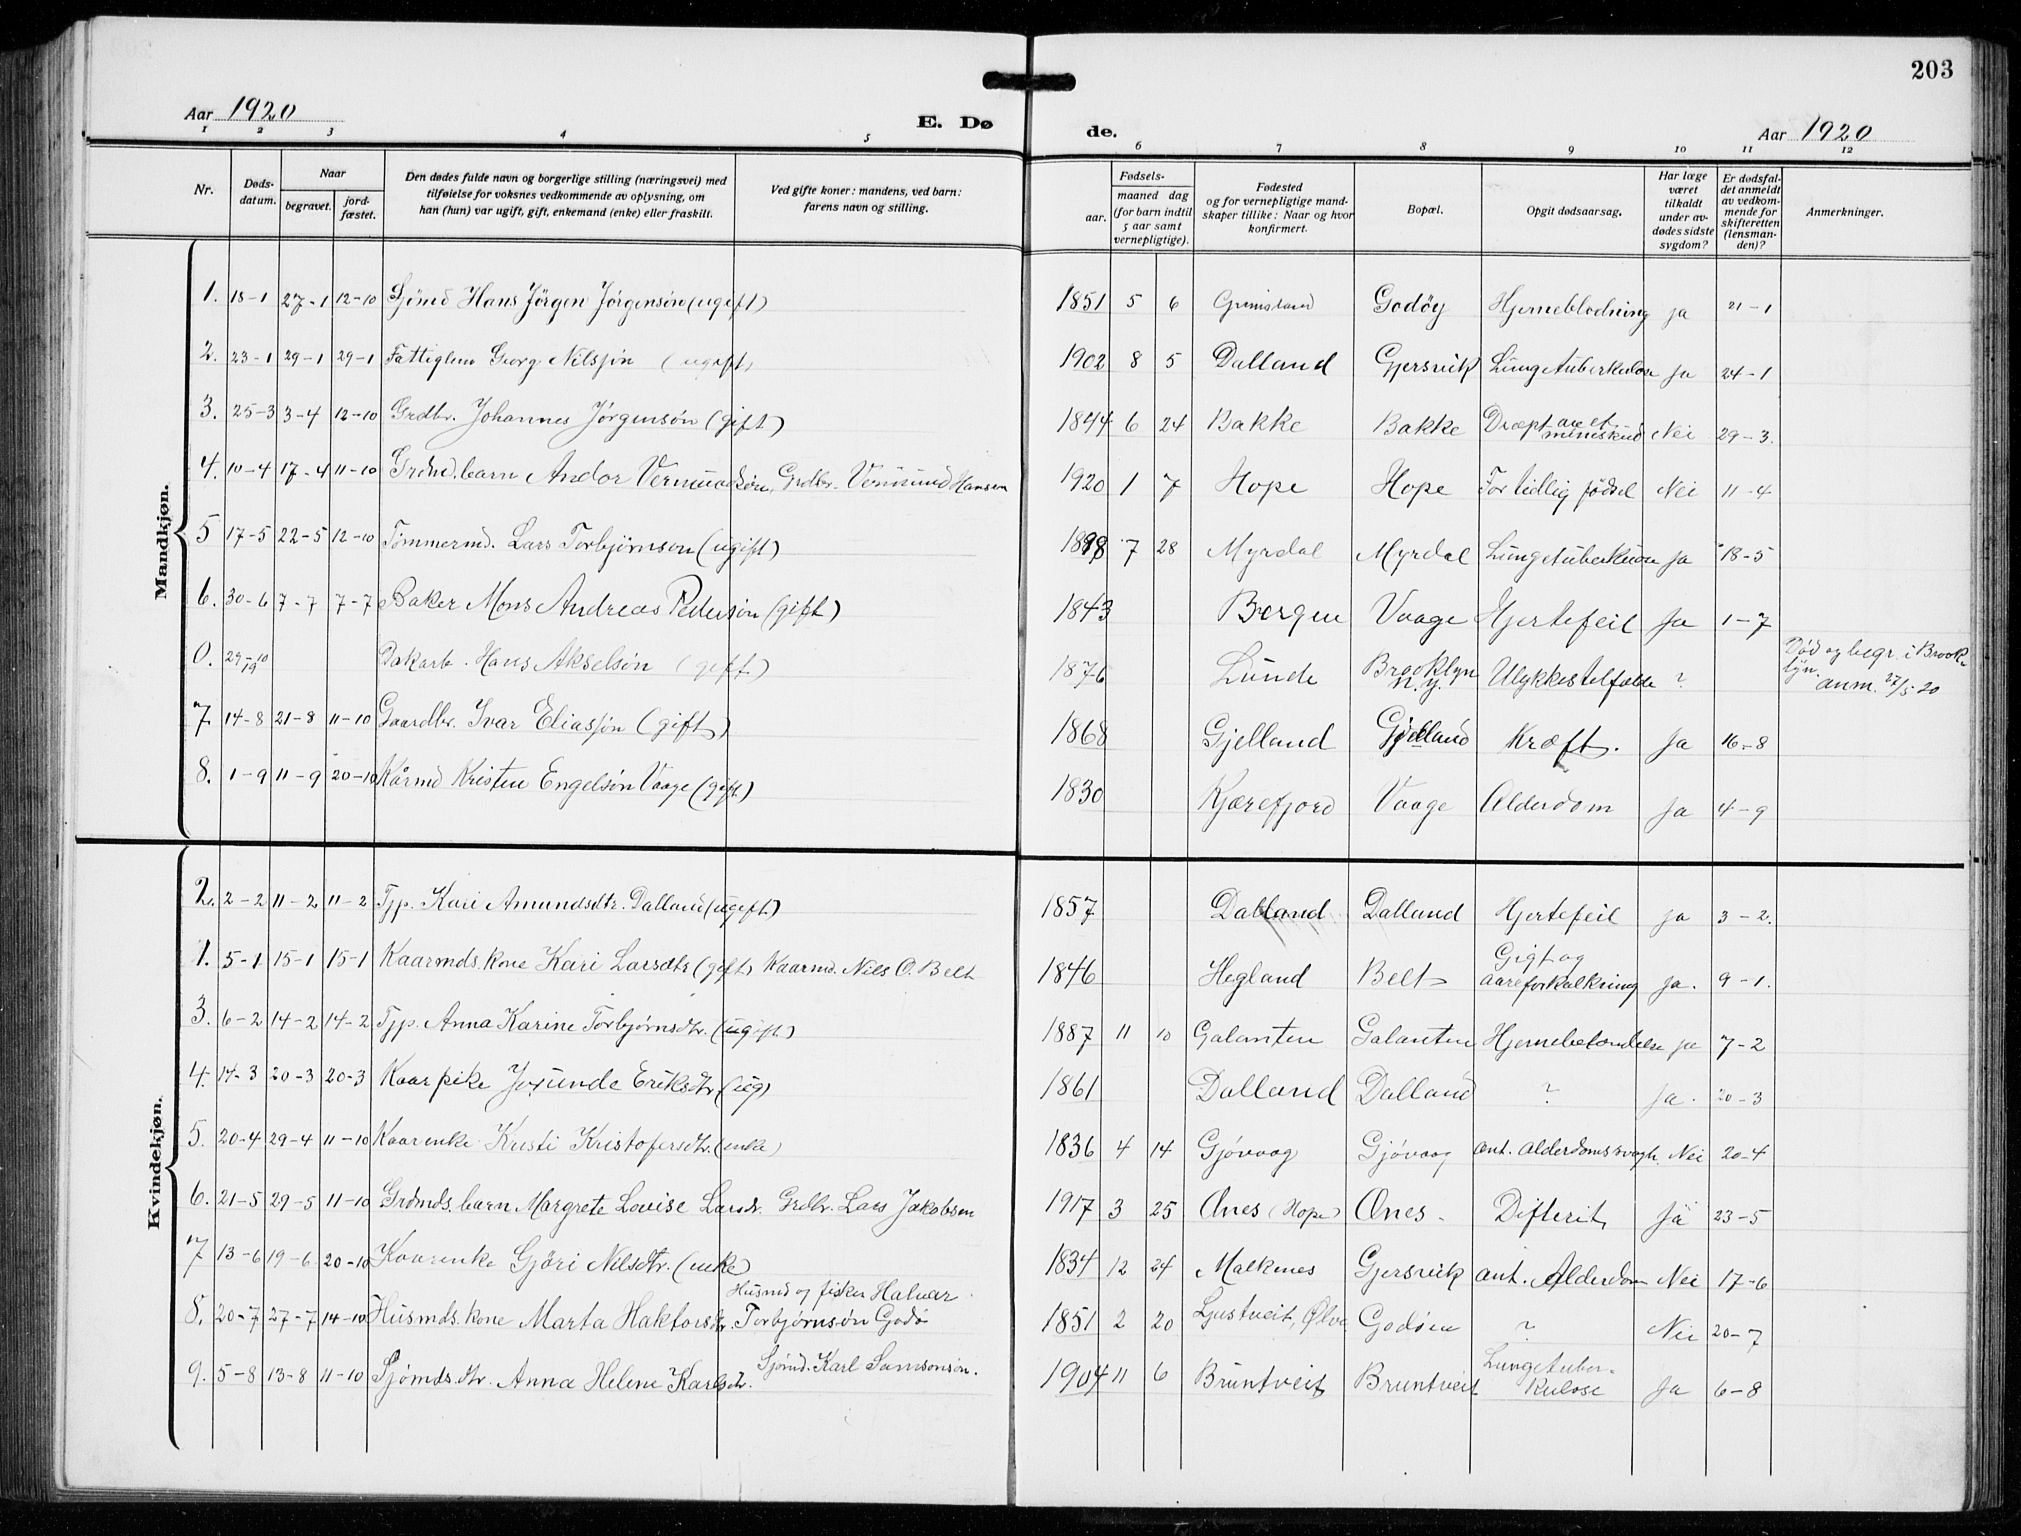 203
Aar 1920
E. Dø
de.
Aar 1920
1 2 3 4 5 6 7 8 9 10 11 12
Nr.
Døds-
datum.
Naar
begravet.
jord-
fæstet.
Den dødes fulde navn og borgerlige stilling (næringsvei) med
tilføielse for voksnes vedkommende av oplysning, om
han (hun) var ugift, gift, enkemand (enke) eller fraskilt.
Ved gifte koner: mandens, ved barn:
farens navn og stilling.
Fødsels-
aar.
maaned dag
(for barn indtil
5 aar samt
vernepligtige).
Fødested
og for vernepligtige mand-
skaper tillike: Naar og hvor
konfirmert.
Bopæl.
Opgit dødsaarsag.
Har læge
været
tilkaldt
under av-
dødes sidste
sygdom?
Er dødsfal-
det anmeldt
av vedkom-
mende for
skifteretten
(lensman-
den)?
Anmerkninger.
Mandkjøn.
1. 18-1 27-1 12-10 Sjömd Hans Jörgen Jörgensön (ugift) 1851 5 6 Grimsland Godöy Hjerneblodning ja 21-1
2. 23-1 29-1 29-1 Fattiglem Georg Nilssön (ugift) 1902 8 5 Dalland Gjersvik Lungetuberkulose Ja 24-1
3. 25-3 3-4 12-10 Grdbr. Johannes Jørgensön (gift) 1844 6 24 Bakke Bakke Dræpt av et mineskud Nei 29-3.
4. 10-4 17-4 11-10 Grdmd. barn Andor Vermundsön, Grdbr. Vermund Hansen 1920 1 7 Hope Hope For tidlig födsel Nei 11-4
5 17-5 22-5 12-10 Tömmermd. Lars Torbjörnson (ugift) 1898 7 28 Myrdal Myrdal Lungetuberkulose Ja 18-5
6. 30-6 7-7 7-7 Baker Mons Andreas Pedersön (gift) 1843 Bergen Vaage Hjertefeil Ja 1-7
0. 29-10 19 Dakarb. Hans Akselsön (gift) 1876 Lunde Brooklyn N.Y. Ulykkestilfælde ? Död og begr. i Brook-
lyn.
anm. 27/5-20
7. 14-8 21-8 11-10 Gaardbr. Ivar Eliassön (gift) 1868 Gjelland Gjelland Kræft. Ja 16-8
8. 1-9 11-9 20-10 Kårmd Kristen Engelsön Vaage (gift) 1830 Kjærefjord Vaage Alderdom Ja 4-9
Kvindekjøn.
2. 2-2 11-2 11-2 Tjp. Kari Amundsdtr. Dalland (ugift) 1857 Dalland Dalland Hjertefeil ja 3-2.
1. 5-1 15-1 15-1 Kaarmds. kone Kari Larsdtr (gift) Kaarmd. Nils O. Belt 1846 Hegland Belt Gigt og aareforkalkning ja. 9-1.
3. 6-2 14-2 14-2 Tjp. Anna Karine Torbjørnsdtr. (ugift) 1887 11 10 Galanten Galanten Hjernebetændelse ja 7-2
4. 14-3 20-3 20-3 Kaarpike Jorunde Eriksdtr (ug) 1861 Dalland Dalland ? Ja. 20-3
5. 20-4 29-4 11-10 Kaarenke Kristi Kristofersdtr. (enke) 1836 4 14 Gjövaag Gjövaag ant. Alderdomssvagh. Nei 20-4
6. 21-5 29-5 11-10 Grdmds. barn Margrete Lovise Larsdr. Grdbr. Lars Jakobsen 1917 3 25 Ænes (Hope) Ænes. Difterit Ja 23-5
7 13-6 19-6 20-10 Kaarenke Gjöri Nilsdtr. (enke) 1834 12 24 Malkenes Gjersvik ant. Alderdom Nei 17-6
8. 20-7 27-7 14-10 Husmds. kone Marta Haktorsdtr. Husmd og fisker Halvar Torbjørnsön Godö 1851 2 20 Ljustveit, Ølve Godöen ? Nei 20-7
9. 5-8 13-8 11-10 Sjømds. dtr. Anna Helene Karlsdtr. Sjömd. Karl Samsonsön. 1904 11 6 Bruntveit Bruntveit Lungetuber-
kulose Ja 6-8